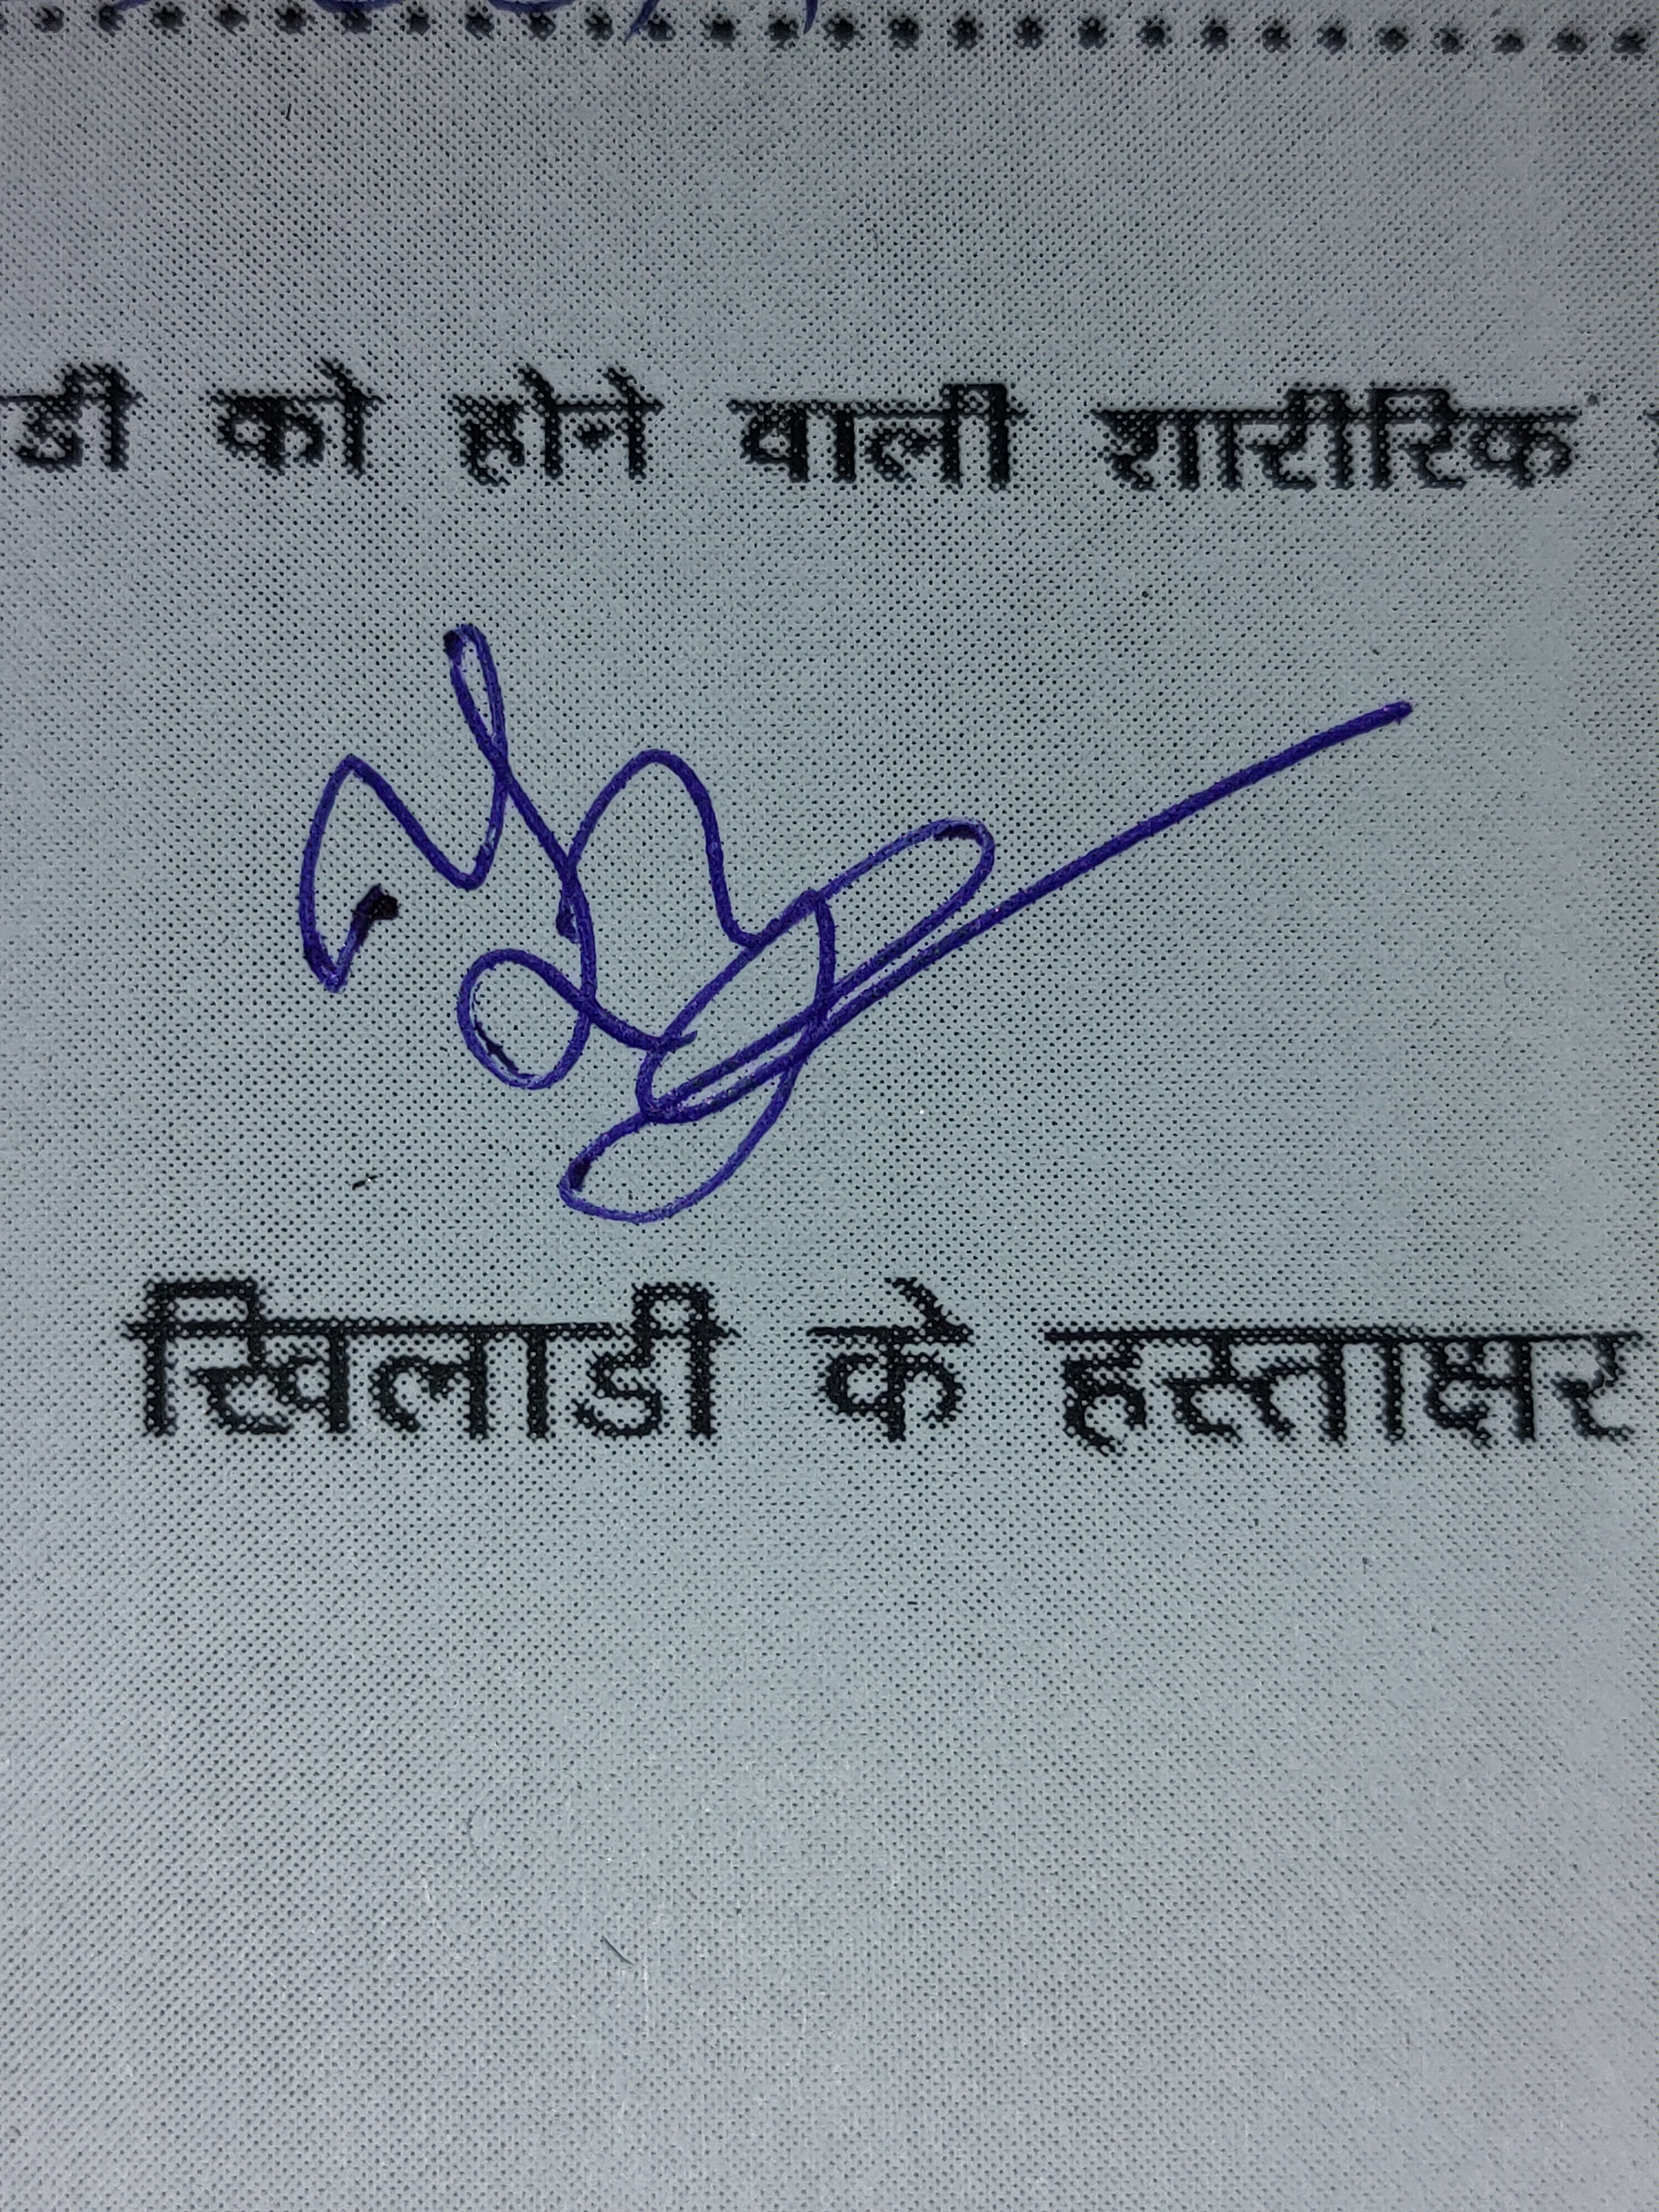 डी को होने वाली शारीरिक
खिलाडी के हस्ताक्षर